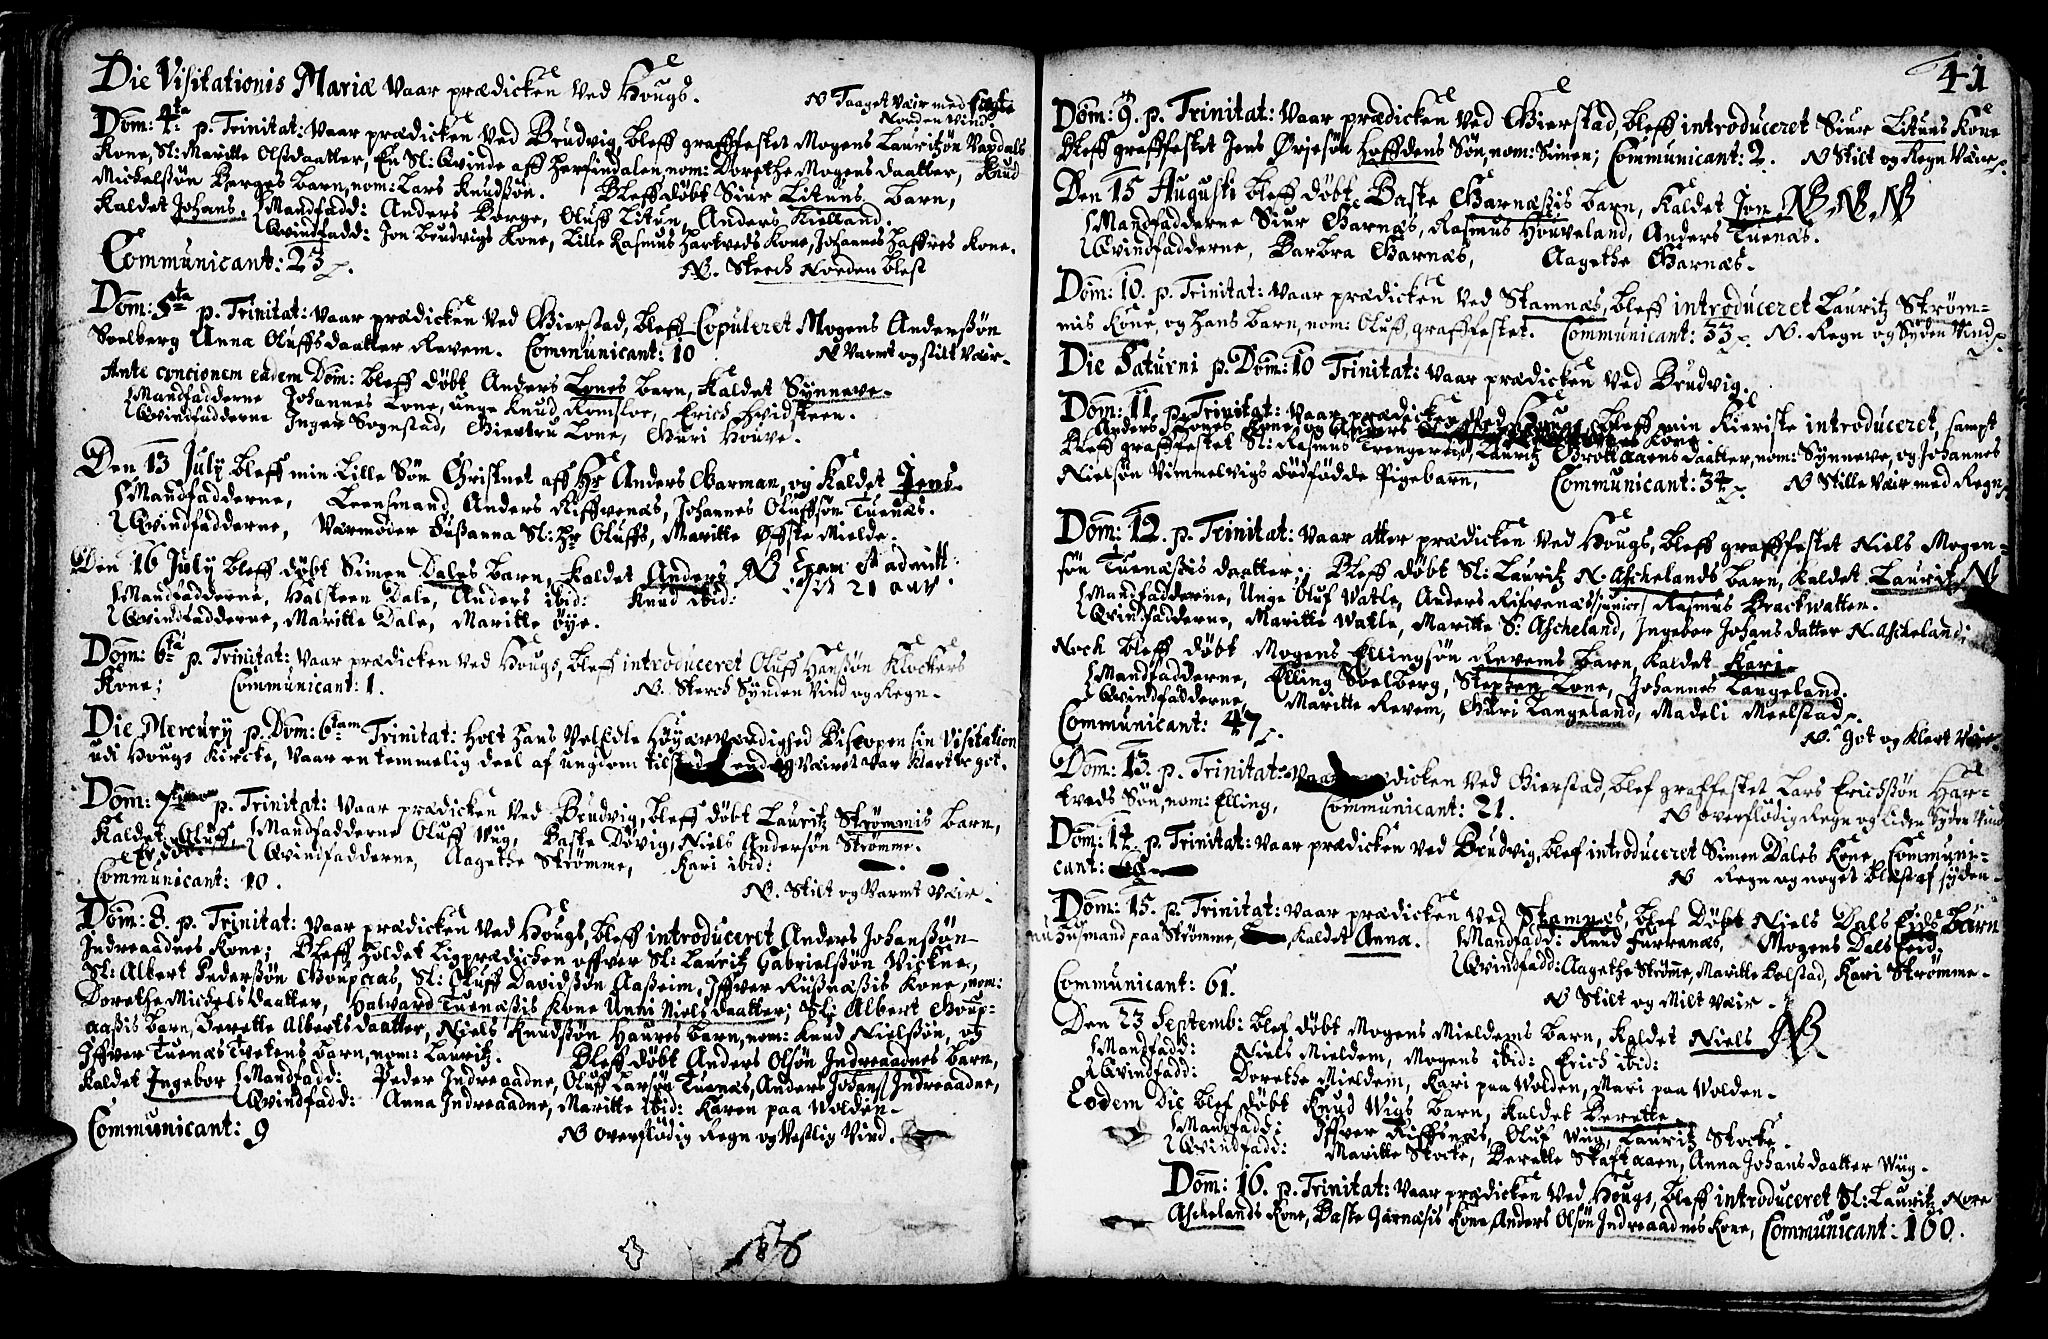 Die Visitationis Mariæ Vaar prædicken ved Hougs.
N Taaget Vær med sagte
Norden Vind
Dom: 4ta p. Trinitat: Vaar prædicken ved Brudvig, bleff grafffestet Mogens Lauritzøn Vaxdals
Kone, Sl: Maritte Olsdaatter, En Sl: Qvinde aff Herfindalen, nom: Dorethe Mogens daatter, Knud
Michelsøn Berges barn, nom: Lars Knudsøn. Bleff døbt Siur Lituns barn,
Kaldet Johans, Mandfadd: Anders Borge, Oluff Litun, Anders Kielland.
Qvindfadd: Jon Brudvigs Kone, Lille Rasmus Hartveds Kone, Johannes Haffres Kone.
Communicant: 23.
NB. Sterch Norden blest
Dom: 5ta p. Trinitat: Vaar prædicken ved Gierstad, bleff Copuleret Mogens Andersøn
Soelberg Anna Oluffsdaatter Revem. Communicant: 10
N Varmt og stilt Vær.
Ante concionem eadem Dom: bleff døbt Anders Lones barn, Kaldet Synneve.
Mandfadderne Johannes Lone, unge Knud Romslor, Erich Hvidsteen.
Qvindfadderne Inger Sognstad, Giertru Lone, Guri Houve.
Den 13 July bleff min Lille Søn Christnet aff Hr Anders Garman, og Kaldet Jens.
Mandfadderne, Leensmand, Anders Riffvenæs, Johannes Oluffsøn Tuenæs.
Qvindfadderne, Værmoder Susanna Sl: Hr Oluffs, Maritte Øffste Mielde.
Den 16 July bleff døbt Simen Dales barn, Kaldet Anders NB Exam: et admitt:
21 aar
Mandfadderne, Halsteen Dale, Anders ibid: Knud ibid:
Qvindfadderne, Maritte Dale, Maritte Øye.
Dom: 6ta p. Trinitat: Vaar prædicken ved Hougs, bleff introduceret Oluff Hansøn Klockers
Kone; Communicant: 1.
N. Sterch Synden Vind og Regn.
Die Mercury p. Dom: 6tam Trinitat: Holt Hans VelEdle Høyærværdighed Biscopen sin Visitation
udi Hougs Kircke, Vaar en temmelig deel af ungdom Væiret var Klart og got.
Dom: p. Trinitat: Vaar prædicken ved Brudvig, bleff døbt Lauritz Strømmis barn,
Kaldet Oluff, Mandfadderne Oluff Wiig, Baste Døvig, Niels Andersøn Strømme.
Qvindfadderne, Aagethe Strømme, Kari ibid:
Communicant: 10.
N. Stilt og Varmt Vær.
Dom: 8. p. Trinitat: Vaar prædicken ved Hougs, bleff introduceret Anders Johansøn
Indreaadnes Kone; Bleff Holdet Ligprædichen offver Sl: Lauritz Gabrielsøn Vickne,
Sl: Albert Pedersøn Goupaas, Sl: Oluff Davidsøn Aaseim, Iffver Rusnæsis Kone, nom:
Dorethe Michelsdaatter, Halvard Tuenæsis Kone Unni Nielsdaatter; Sl: Albert Goup-
aasis barn, Berette Albertsdaatter, Niels Knudsøn Haures barn, nom: Knud Nielsøn, og
Iffver Tuenæs Twetens barn, nom: Lauritz. Bleff døbt Anders Olsøn Indreaadnes barn,
Kaldet Ingebor Mandfadd: Peder Indreaadne, Oluff Larsøn Tuenæs, Anders Johans: Indreaadne,
Qvindfadd: Anna Indreaadne, Maritte ibid: Karen paa Wolden.
Communicant: 9
N Overflødig Regn og Vestlig Vind.
41
Dom: 9. p. Trinitat: Vaar prædicken ved Gierstad, bleff introduceret Siur Lituns Kone
Bleff grafffestet Jens Ørjesøn Hoffdens Søn, nom: Simen; Communicant: 2. N Stilt og Regn Vær.
Den 15 Augusti bleff døbt Baste Garnæsis barn, Kaldet Jon, NB, NB, NB
Mandfadderne Siur Garnæs, Rasmus Houveland, Anders Tuenæs.
Qvindfadderne, Barbra Garnæs, Aagethe Garnæs.
Dom: 10. p. Trinitat: Vaar prædicken ved Stamnæs, bleff introduceret Lauritz Strøm-
mis Kone, og Hans barn, nom: Oluff, grafffestet. Communicant: 33. N. Regn og Syden Vind.
Die Saturni p. Dom: 10 Trinitat: Vaar prædicken ved Brudvig.
Dom: 11. p. Trinitat: Vaar prædicken ved Hougs, bleff min Kieriste introduceret, sampt
Anders Lones Kone og Anders Kone.
Bleff grafffestet Sl: Rasmus Trengereid, Lauritz Grottaaens daatter, nom: Synneve, og Johannes
Nielsøn Vimmelvigs dødfødde Pigebarn, Communicant: 34. N Stille Vær med Regn.
Dom: 12. p. Trinitat: Vaar atter prædicken ved Hougs, bleff grafffestet Niels Mogen-
søn Tuenæsis daatter; Bleff døbt Sl: Lauritz N. Aschelands barn, Kaldet Lauritz, NB
Mandfadderne, Unge Oluf Watle, Anders Rifvenæs junior, Rasmus Brackvatten.
Qvindfadderne, Maritte Watle, Maritte S: Ascheland, Ingebor Johansdatter N. Ascheland;
Noch bleff døbt Mogens Ellingsøn Revems barn, Kaldet Kari.
Mandfadderne, Elling Soelberg, Stephen Lone, Johannes Langeland.
Qvindfadderne, Maritte Revem, Guri Langeland, Madeli Meelstad.
Communicant: 47.
N. Got og Klart Vær.
Dom: 13. p. Trinitat: Vaar prædicken ved Gierstad, blef graffestet Lars Erichsøn Har-
tveds Søn, nom: Elling, Communicant: 21.
N Overflødig Regn og liden Syden Vind
Dom: 14. p. Trinitat: Vaar prædicken ved Brudvig, blef introduceret Simen Dales Kone, Communi-
cant:
N Regn og noget blæst af syden.
Dom: 15. p. Trinitat: Vaar prædicken ved Stamnæs, blef Døbt Niels Dals Eids barn
nu Husmand paa Strømme, Kaldet Anna. Mandfadd: Knud Furranæs, Mogens Dals Eid.
Qvindfadd: Aagethe Strømme, Maritte Bolstad, Kari Strømme.
Communicant: 61.
N Stilt og Milt Vær.
Den 23 Septemb: blef døbt Mogens Mieldems barn, Kaldet Niels NB
Mandfadd: Niels Mieldem, Mogens ibid: Erich ibid:
Qvindfadd: Dorethe Mieldem, Kari paa Wolden, Mari paa Wolden.
Eodem Die blef døbt Knud Wigs barn, Kaldet Berette.
Mandfadd: Iffver Riffsnæs, Oluf Wiig, Lauritz Stocke.
Qvindfadd: Maritte Stocke, Berette Skaftaaen, Anna Johansdaatter Wiig.
Dom: 16. p. Trinitat: Vaar prædicken ved Hougs, bleff introduceret Sl: Lauritz Nore
Aschelands Kone, Baste Jarnæsis Kone, Anders Olsøn Indreaadnes Kone, Communicant: 160.